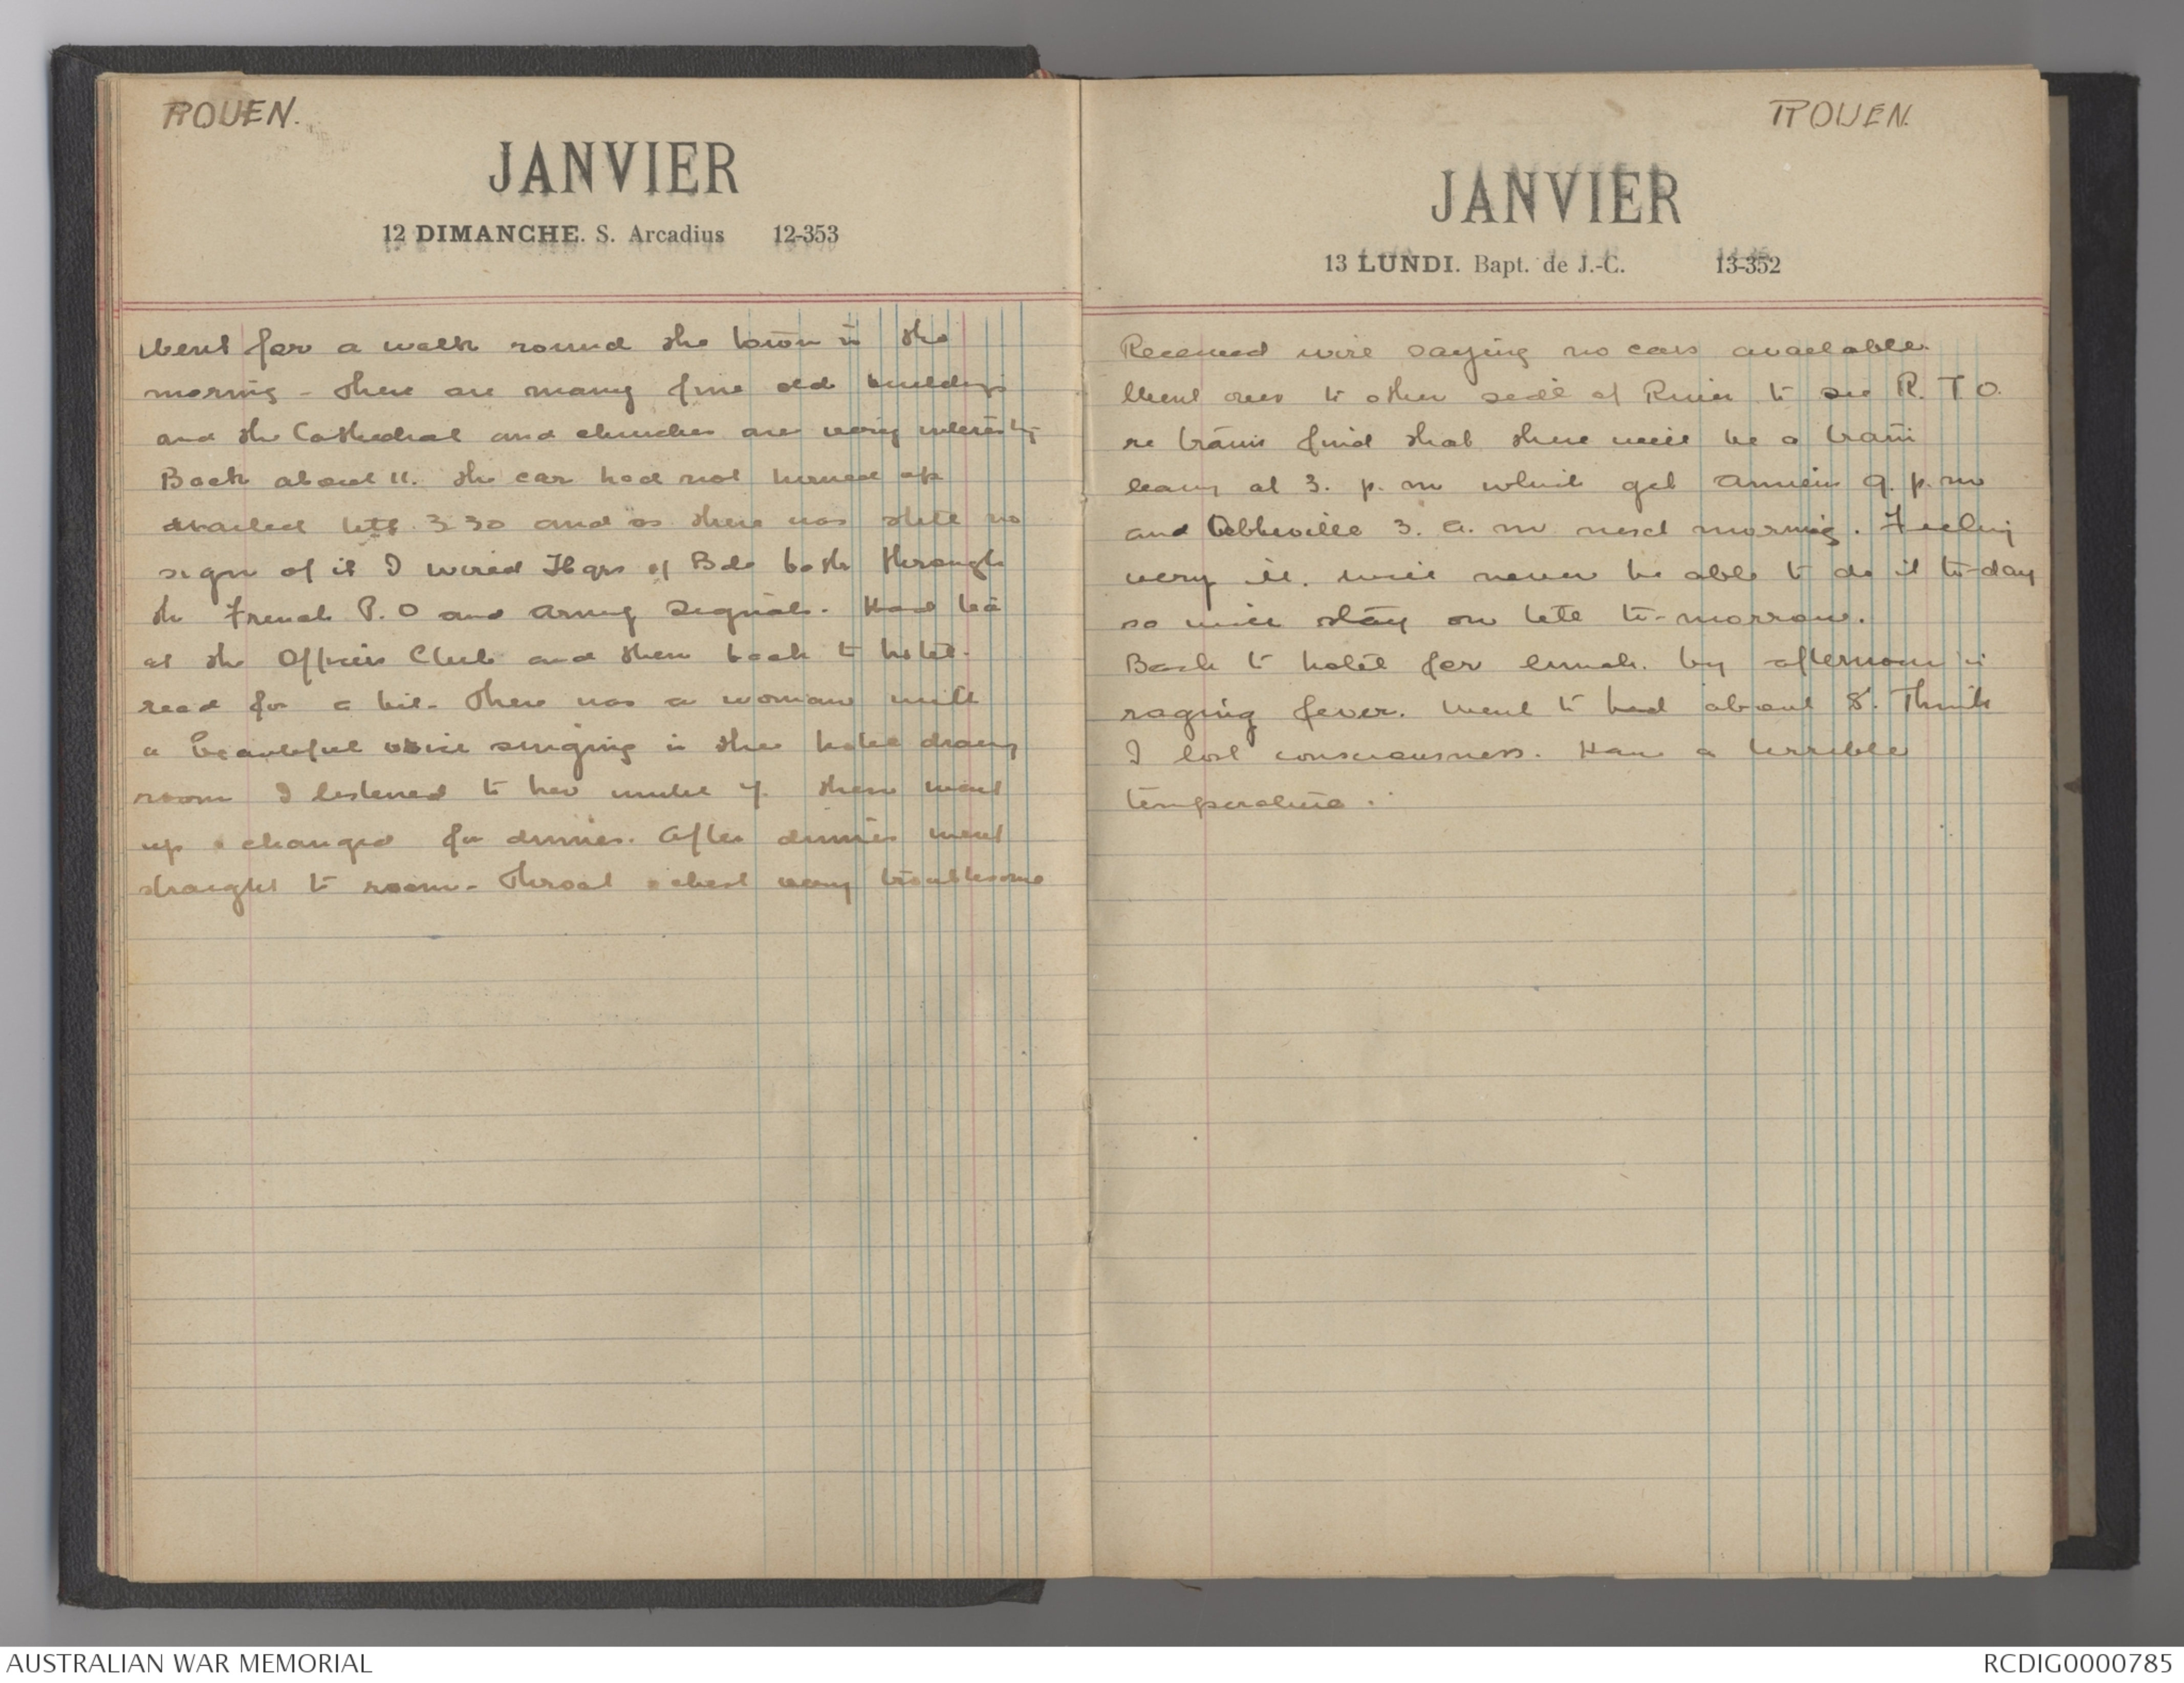 ROUEN.
JANVIER
12 DIMANCHE. S. Arcadius 12-353
Went for a walk round the town in the
morning - there are many fine old buildings
and the Cathedral and churches are very interestg
Back about 11. the car had not turned up
awaited till 3.30 and as there was still no
sign of it I wired Hqrs of Bde both through
the French P.O and Army Signals. Had tea
at the Officers Club and then back to hotel.
read for a bit - there was a woman with
a beautiful voice singing in the hotel drawg
room I listened to her until 7. then went
up & changed for dinner. After dinner went
straight to room - Throat & chest very troublesome
ROUEN.
JANVIER
13 LUNDI. Bapt. de J.-C. 13-352
Received wire saying no cars available.
Went over to other side of River to see R.T.O.
re trains find that there will be a train
leavg at 3. p.m which get Amiens 9. p.m
and Abbeville 3. a.m next morning. Feeling
very ill. will never be able to do it to-day
so will stay on till to-morrow.
Back to hotel for lunch. by afternoon in
raging fever. Went to bed about 8. Think
I lost consciousness. Have a terrible
temperature.
AUSTRALIAN WAR MEMORIAL
RCDIG0000785